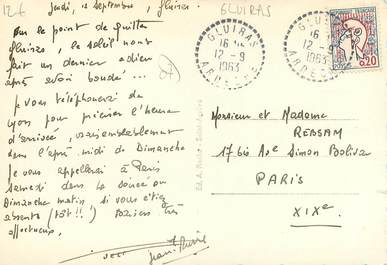 12€
Jeudi, 12 septembre, Gluiras
GLUIRAS
Sur le point de quitter
Gluiras, le soleil nous
fait un dernier adieu
après avoir boudé...
Je vous téléphonerai de
Lyon pour préciser l'heure
d'arrivée, vraisemblablement
dans l'après midi de Dimanche
Je vous appellerai à Paris
samedi dans la soirée ou
Dimanche matin, si vous étiez
absents (tôt!!) Baisers très
affectueux.
Jean-Pierre
GLUIRAS
12-9
1963
ARDÈCHE
GLUIRAS
12-9
1963
ARDÈCHE
0,20
Monsieur et Madame
REDSAM
176 bis Ave Simon Bolivar
PARIS
XIXe